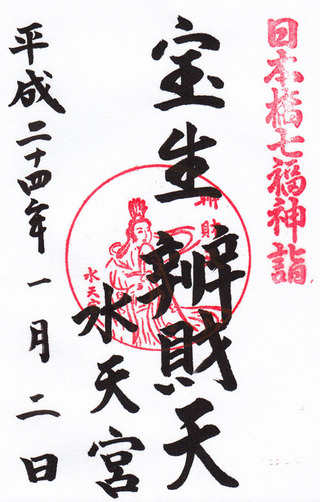 日本橋七福神詣
宝生辨財天
辨財天
水天宮
水天宮
平成二十四年一月二日